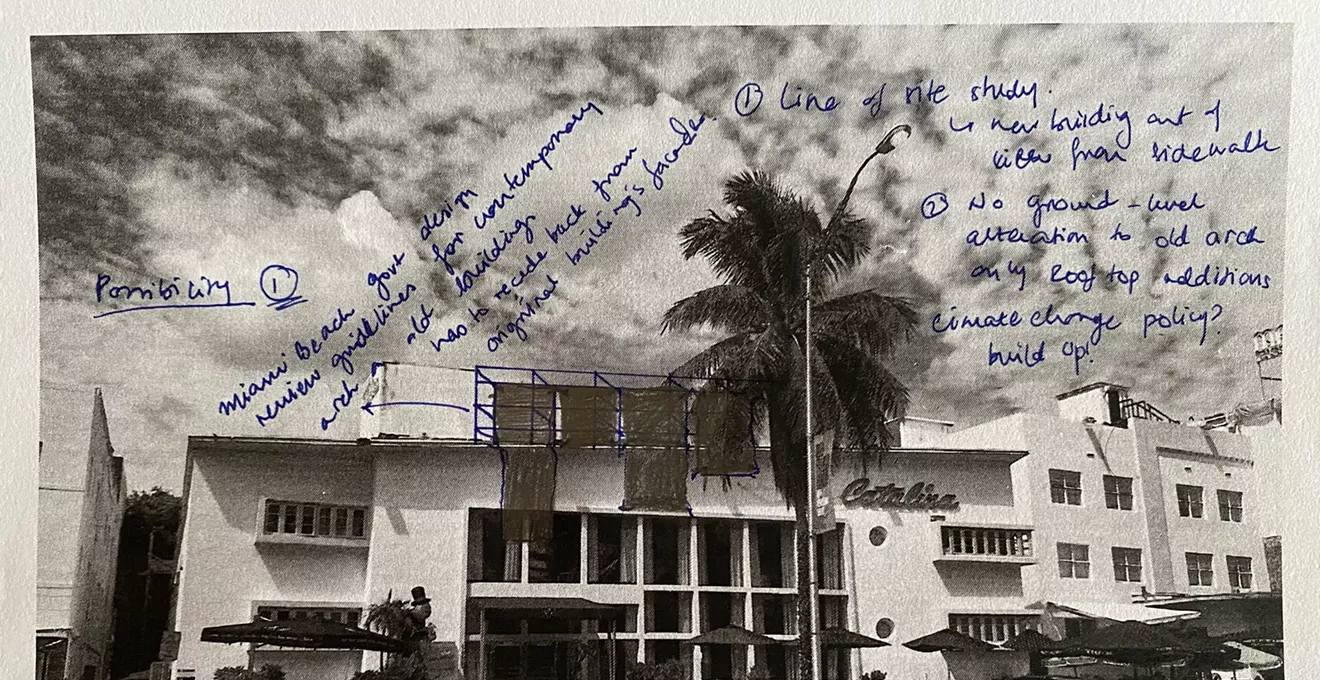 Possibility ①
Miami Beach govt design
review guidelines for contemporary
arch a old buildings
has to recede back from
original building's facade.
① Line of site study.
↳ new building out of
view from sidewalk
② No ground-level
alteration to old arch
only Rooftop additions
climate change policy?
build up!
Catalina